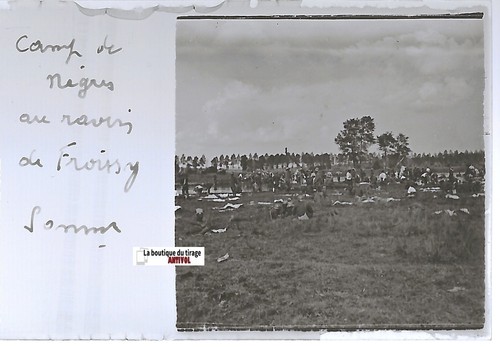 Camp de
Nègres
au ravin
de Froissy
Somme
La boutique du tirage
ANTIVOL